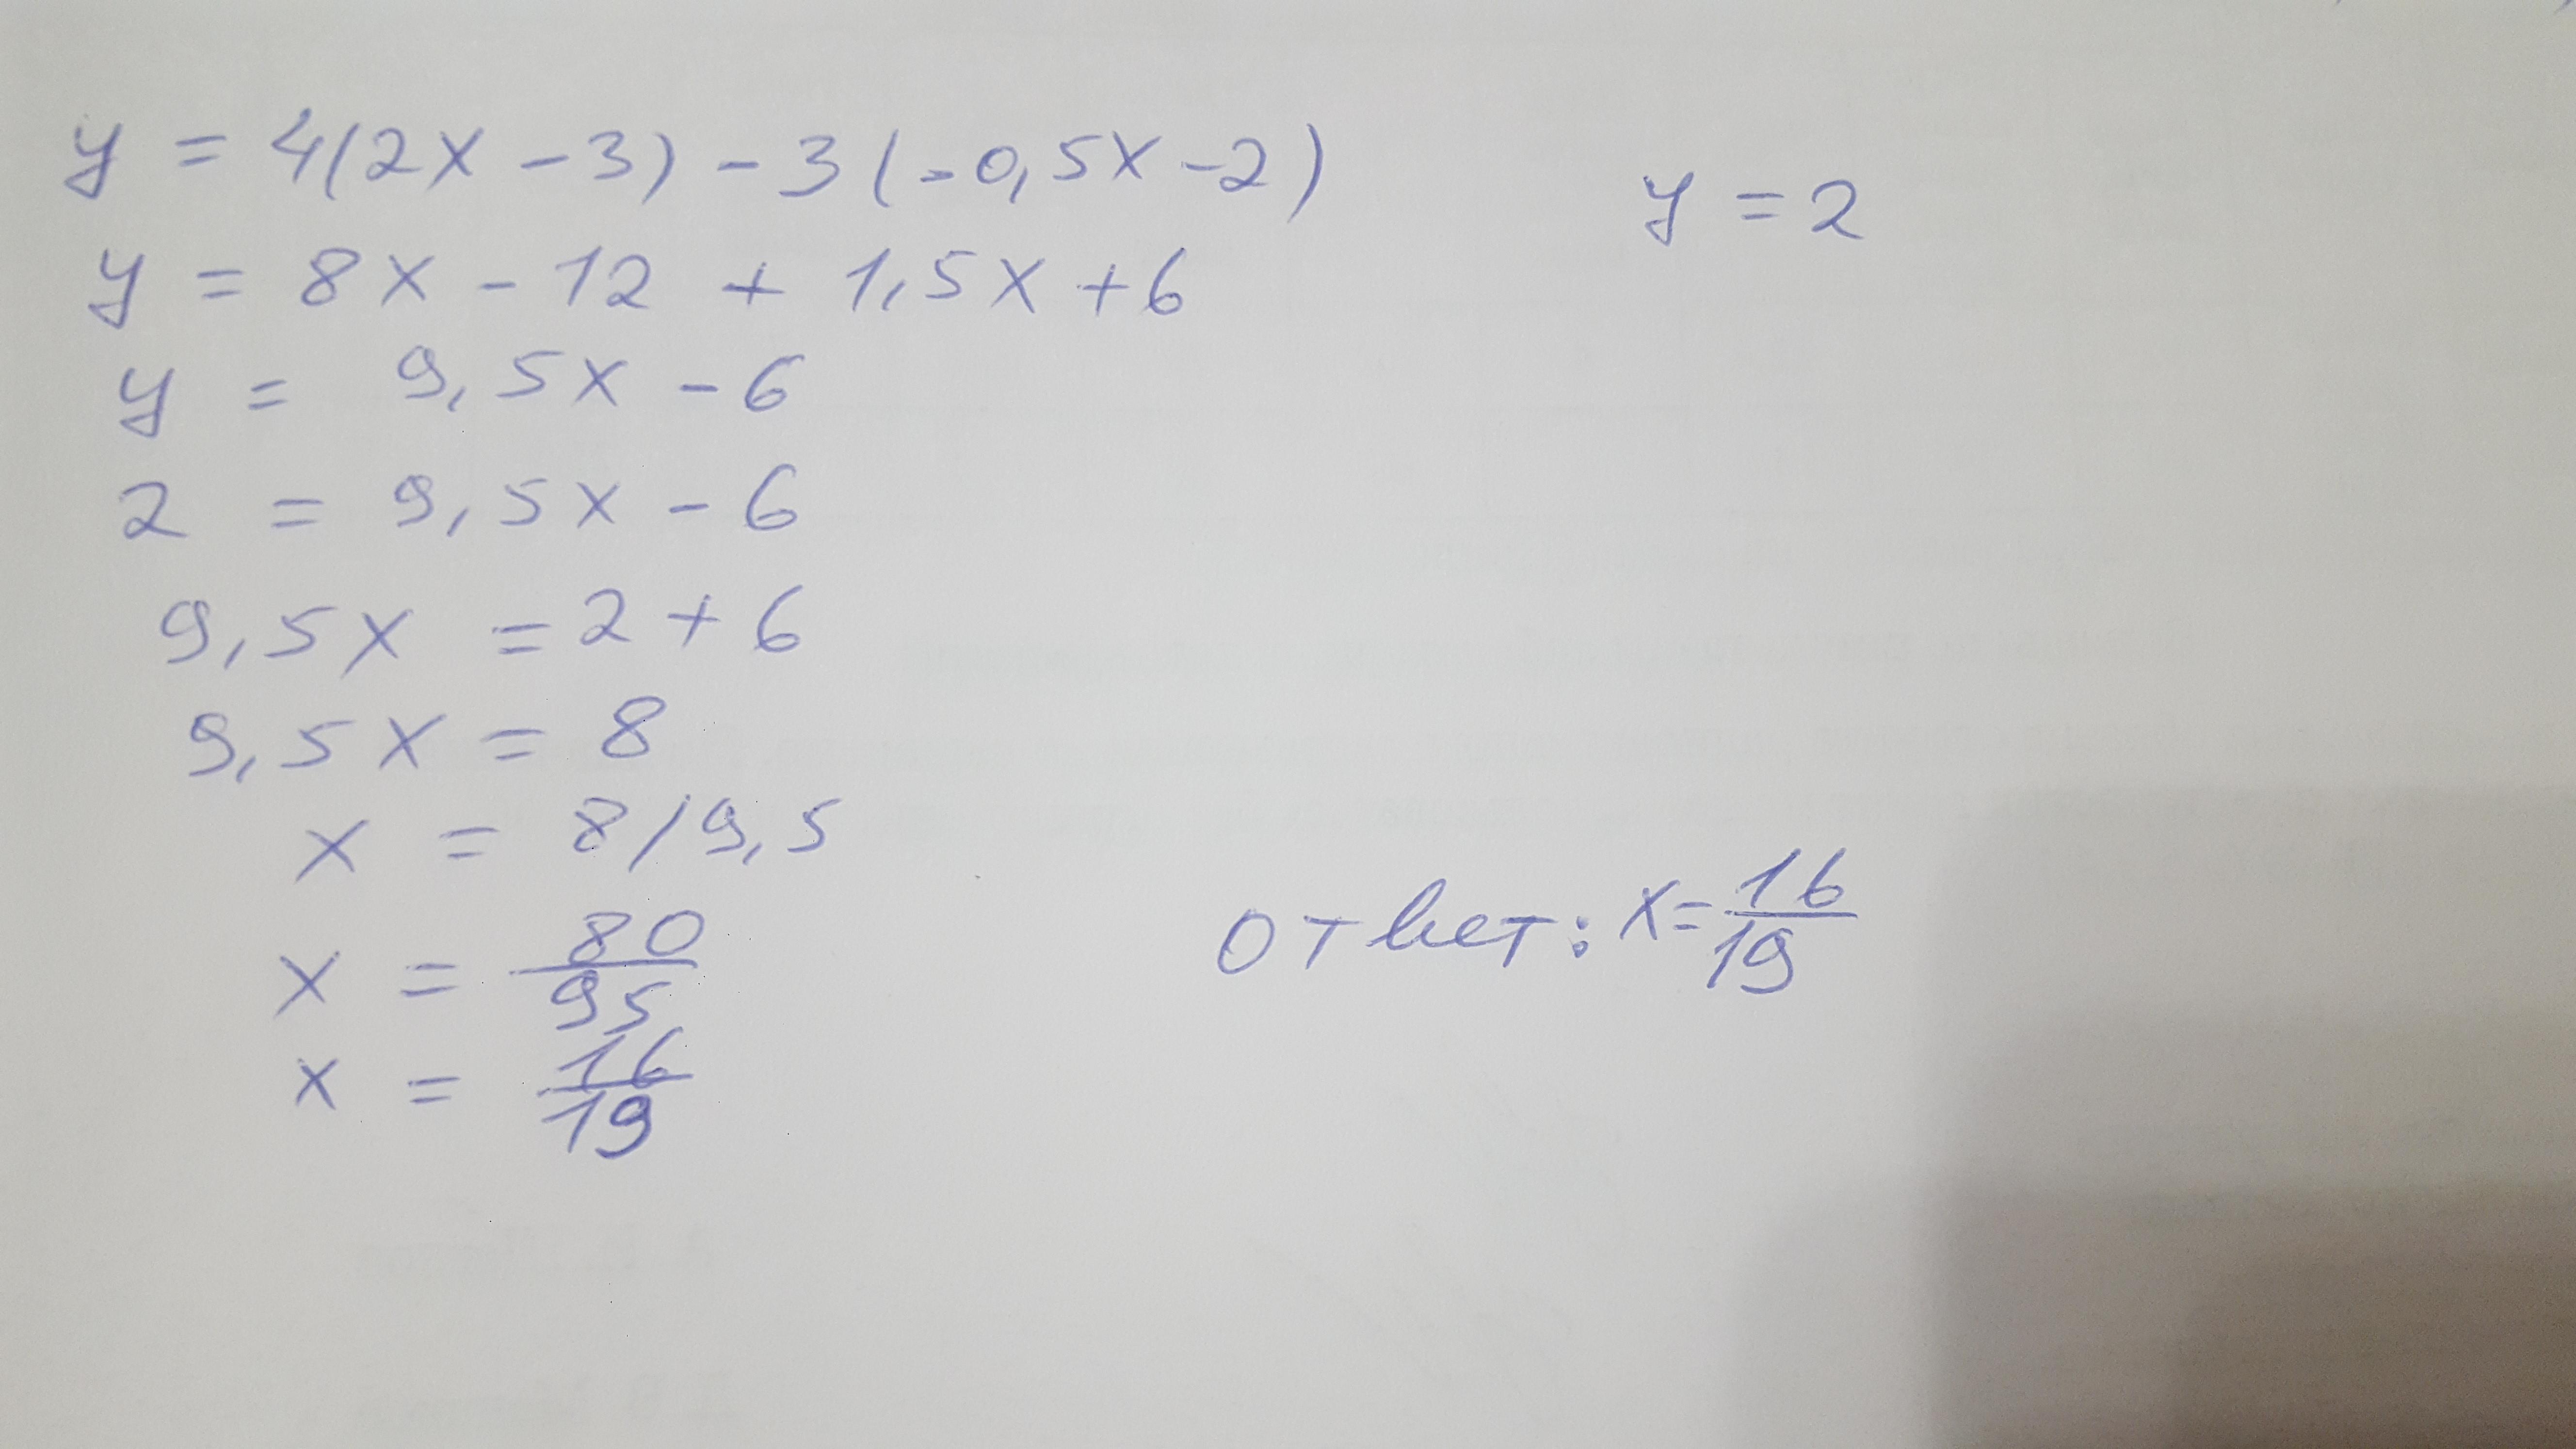 y = 4(2x - 3) - 3(-0,5x - 2)
y = 2
y = 8x - 12 + 1,5x + 6
y = 9,5x - 6
2 = 9,5x - 6
9,5x = 2 + 6
9,5x = 8
x = 8/9,5
x = 80/95
x = 16/19
ответ: x = 16/19